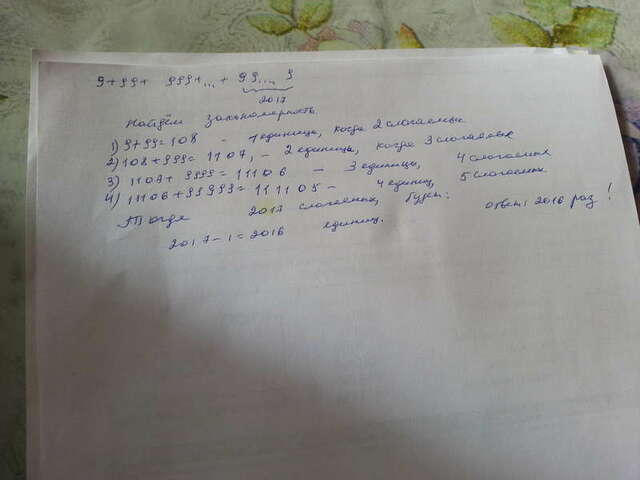 9+99+ 999+...+ 99...9
2017
Найдём закономерность
1) 9+99=108 - 1 единица, когда 2 слогаемых
2) 108+999=1107, - 2 единица, когда 3 слогаемых
3) 1107+ 9999=11106 - 3 единицы, 4 слогаемых
4) 11106+99999=111105 - 4 единиц, 5 слогаемых
Тогда 2017 слогаемых, будет: ответ: 2016 раз!
2017-1=2016 единиц.